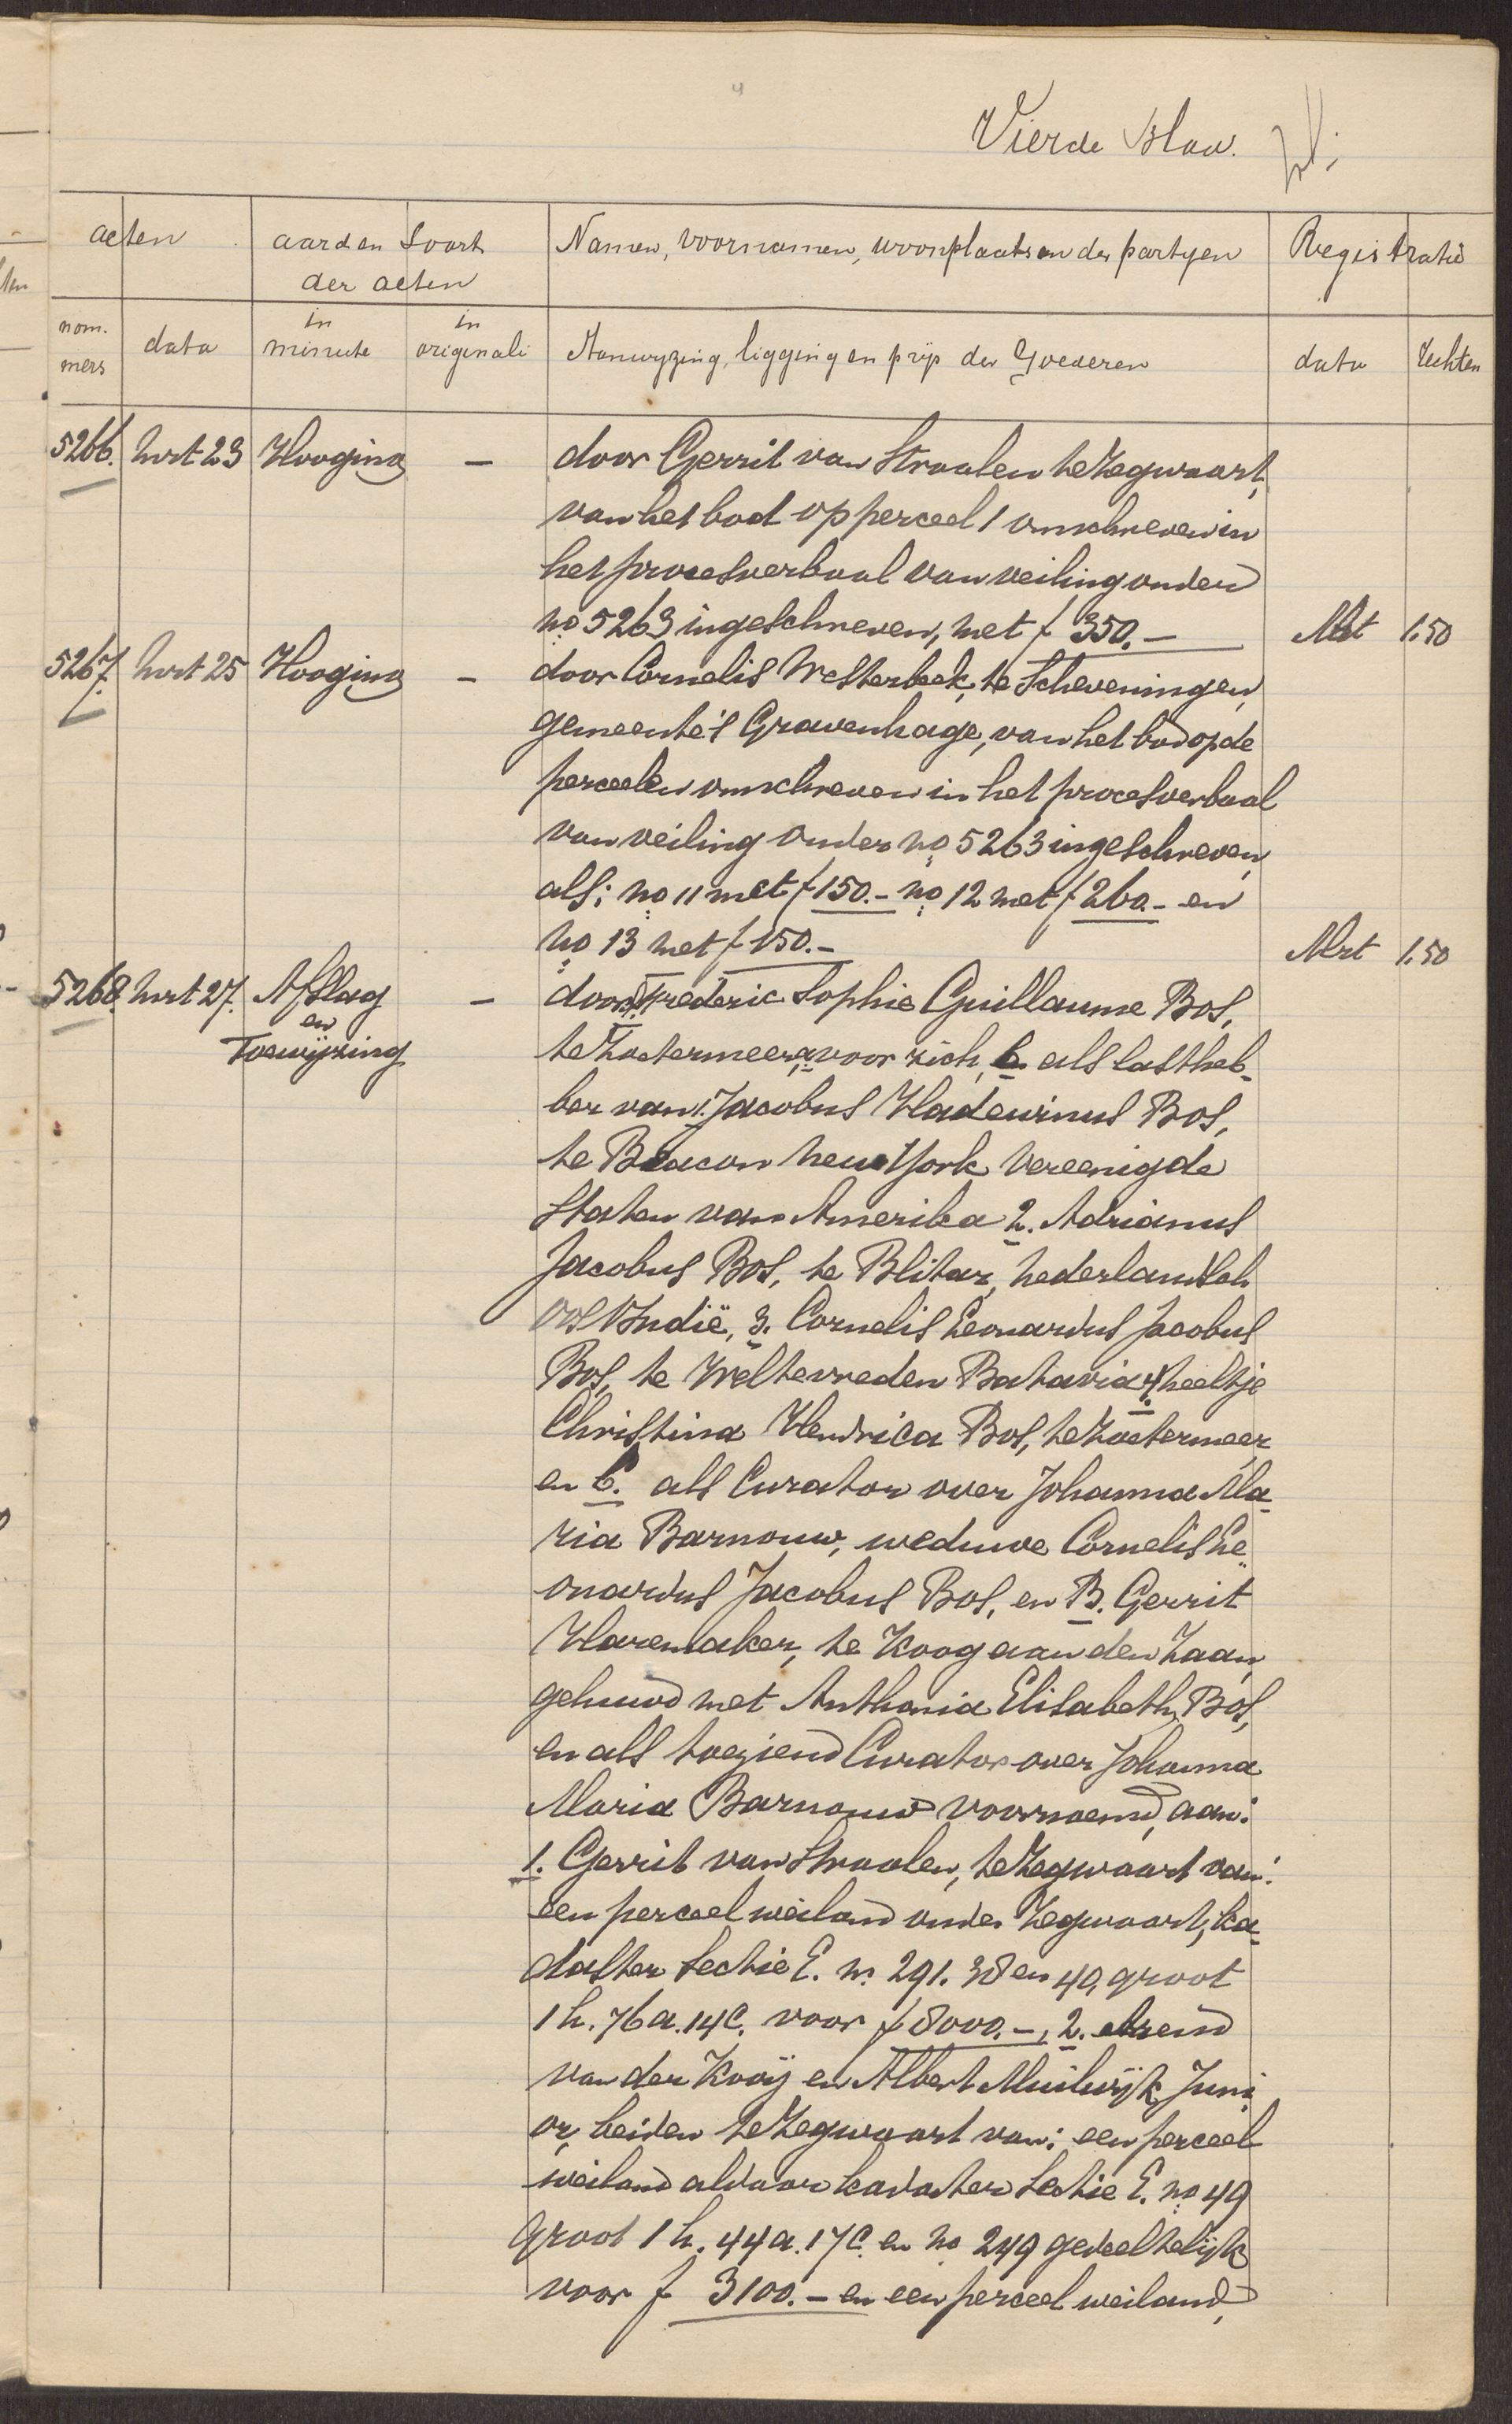 Vierde Blad.
acten aard en Soort der acten Namen, voornamen, woonplaatsen der partyen Registratie
nommers data in minute in originali Aanwyzing, ligging en prijs der Goederen data rechten
5266. Mrt 23 Hooging — door Gerrit van Straalen te Zegwaart,
van het bod op perceel 1 omschreven in
het procesverbaal van veiling onder
no 5263 ingeschreven, met f 350.— Mrt 1.50
5267. Mrt 25 Hooging — door Cornelis Westerbeek, te Scheveningen,
gemeente 's Gravenhage, van het bod op de
perceelen omschreven in het procesverbaal
van veiling onder no 5263 ingeschreven,
als: no 11 met f 150.— no 12 met f 260.— en
no 13 met f 150.— Mrt 1.50
5268. Mrt 27. Afslag en Toewijzing — door Frederic Sophie Guillaume Bos,
te Zoetermeer, a. voor zich, b. als lastheb-
ber van 1. Jacobus Hadewinus Bos,
te Beacon New York Vereenigde
Staten van Amerika 2. Adrianus
Jacobus Bos, te Blitar, Nederlandsch
Oost Indië, 3. Cornelis Leonardus Jacobus
Bos, te Weltevreden Batavia 4. Neeltje
Christina Hendrica Bos, te Zoetermeer
en C. als Curator over Johanna Ma-
ria Barnouw, weduwe Cornelis Le-
onardus Jacobus Bos, en B. Gerrit
Haremaker, te Koog aan den Zaan,
gehuwd met Anthonia Elisabeth Bos,
en als toeziend Curator over Johanna
Maria Barnouw voornoemd, aan:
1. Gerrit van Straalen, te Zegwaart van:
een perceel weiland onder Zegwaart, ka-
daster Sectie E. no 291. 38 en 40, groot
1 h. 76 a. 14 c. voor f 8000.—, 2. Arend
van der Kooij en Albert Muilwijk Juni-
or, beiden te Zegwaart van: een perceel
weiland aldaar kadaster Sectie E. no 49
groot 1 h. 44 a. 17 c. en no 249 gedeeltelijk
voor f 3100.— en een perceel weiland,